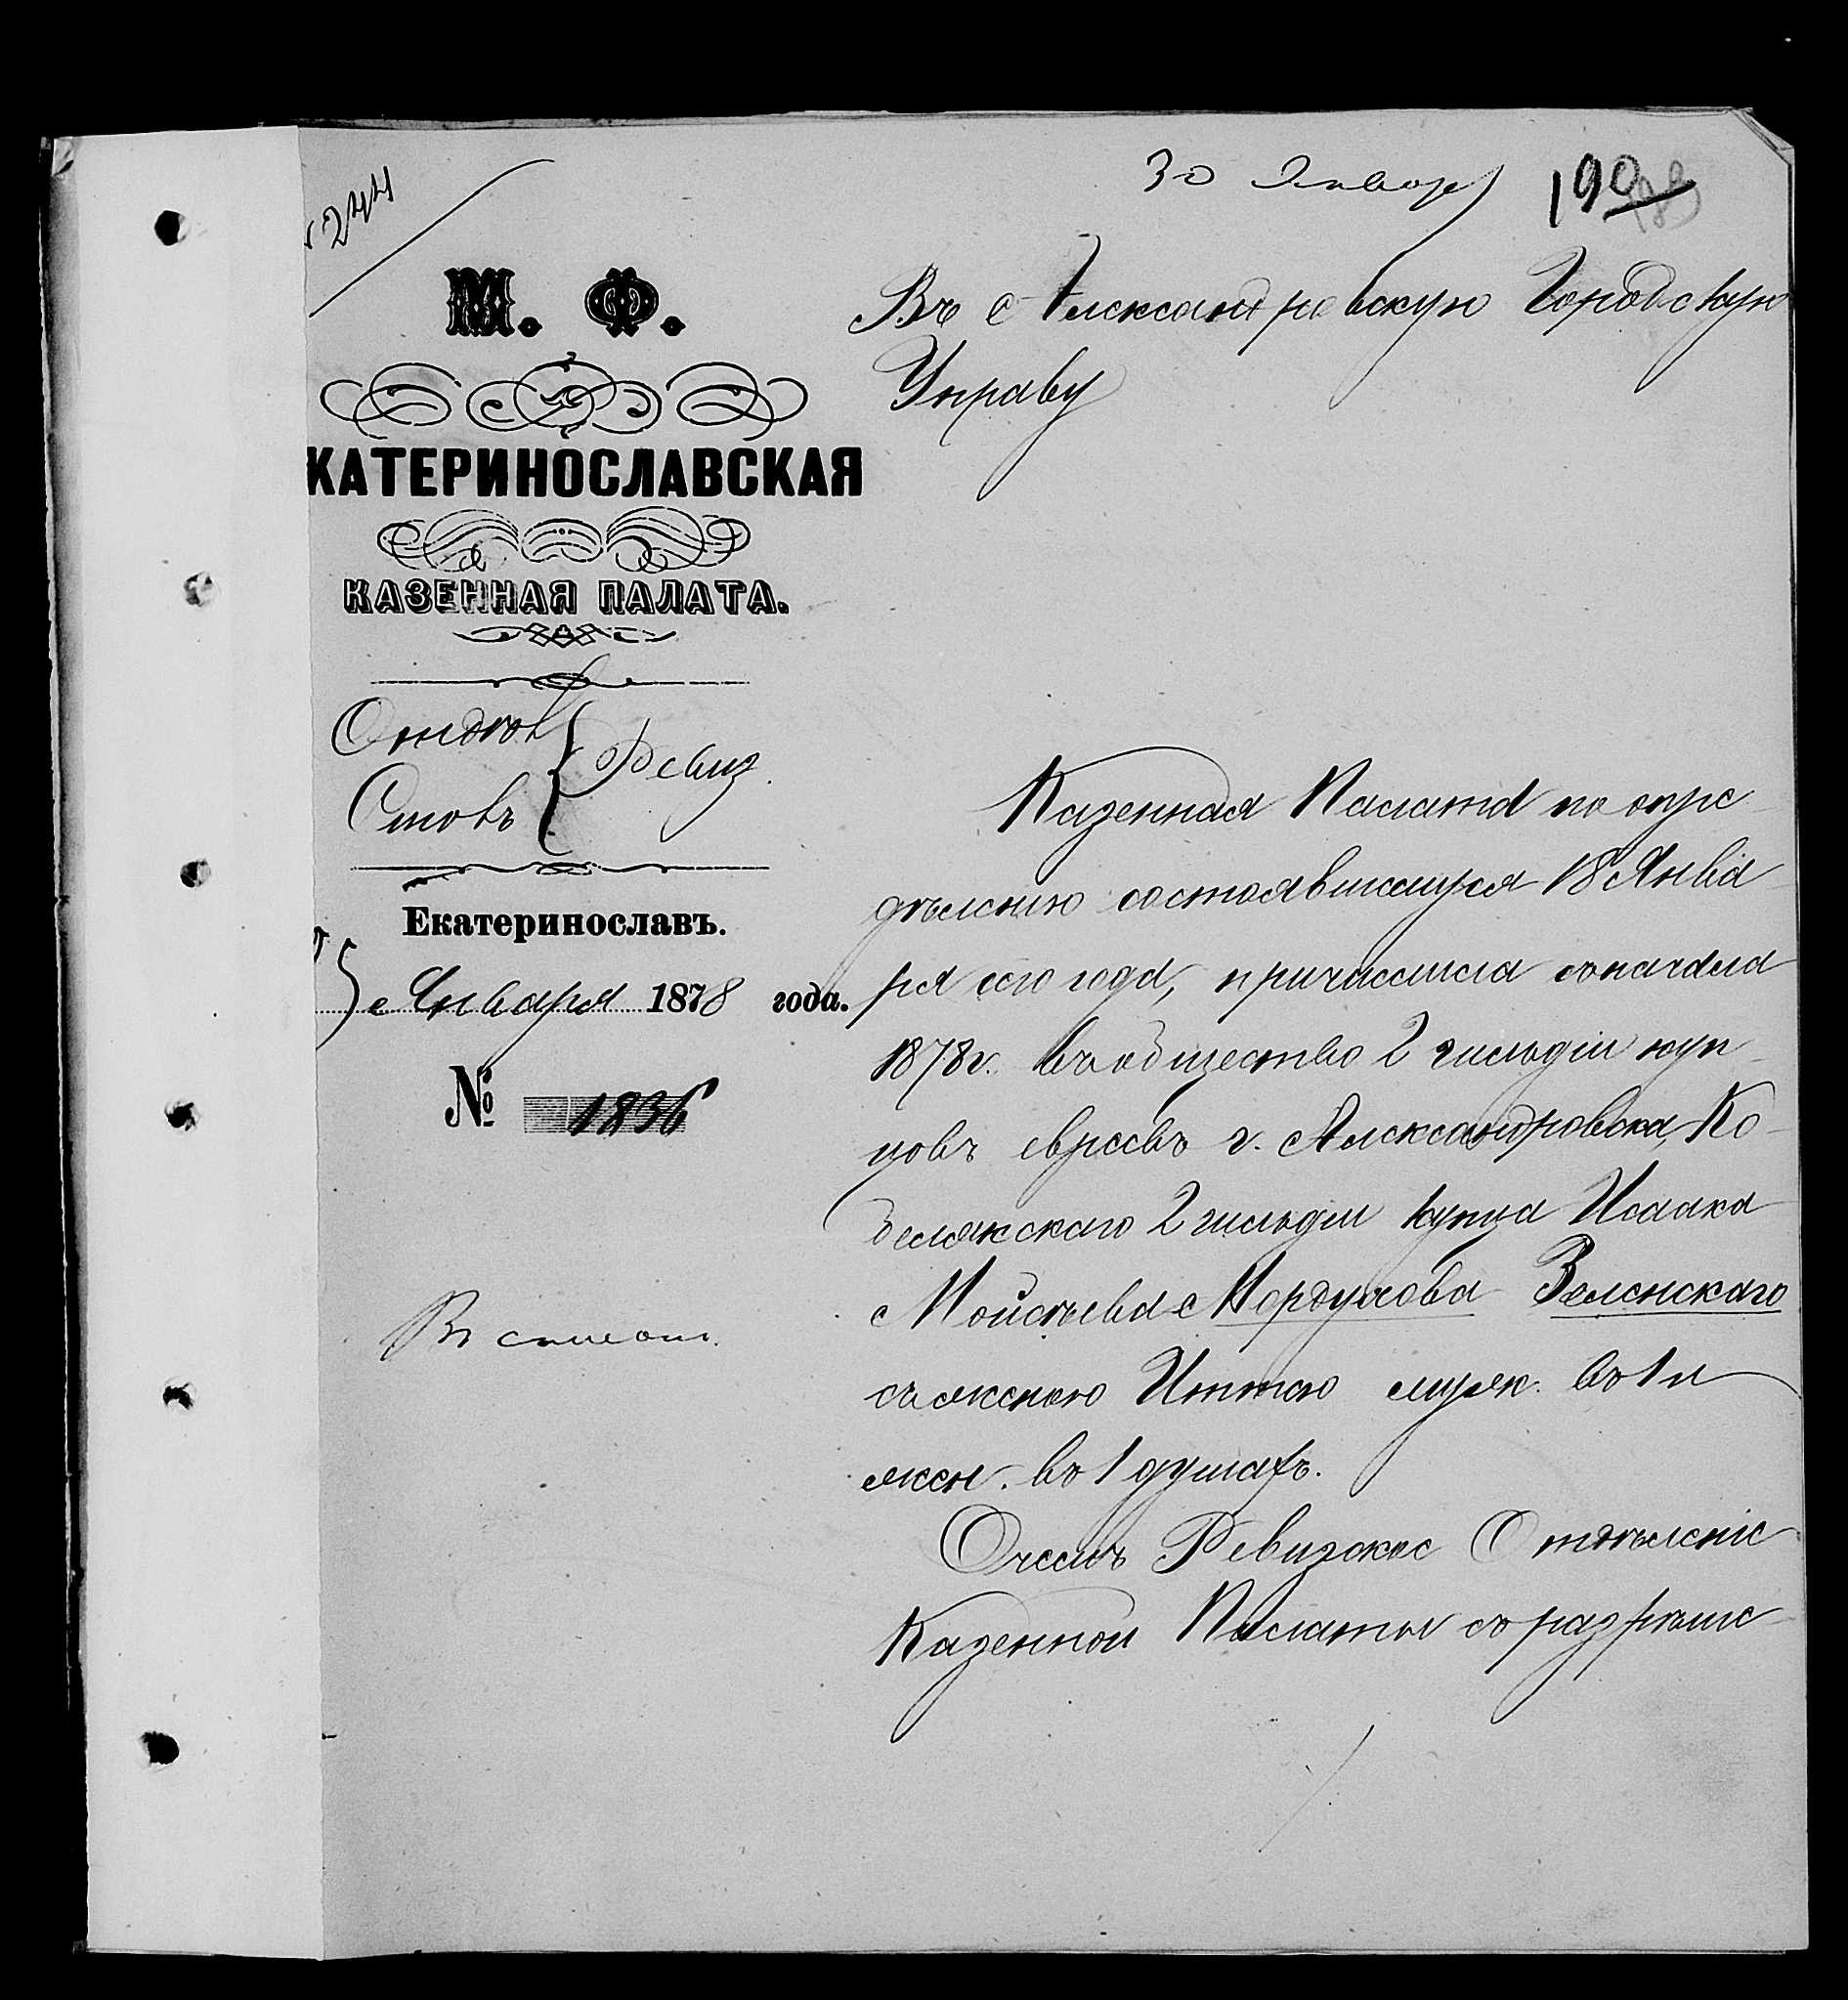 244
30 Января
190
М. Ф.
КАТЕРИНОСЛАВСКАЯ
КАЗЕННАЯ ПАЛАТА.
Отдѣл
Столъ
Ревиз.
Екатеринославъ.
Января 1878 года.
№ 1836
Въ Александровскую Городскую
Управу
Казенная Палата по опре
дѣленію состоявшемуся 18 Янва
ря сего года, причислила съ начала
1878 г. въ общество 2 гильдіи куп
цовъ евреевъ г. Александровска, Ко
белякскаго 2 гильдіи купца Исаака
Мойсѣева Мордухова Зеленскаго
съ женою Иттою муж. въ 1 и
жен. въ 1 душахъ.
О чемъ Ревизское Отдѣленіе
Казенной Палаты съ разрѣше